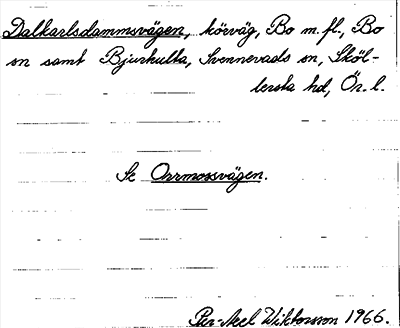 Dalkarlsdammsvägen, körväg, Bo m.fl., Bo
sn samt Bjurhulta, Svennevads sn, Sköl-
lersta hd, Ör. l.
Se Orrmossvägen.
Per-Axel Wiktorsson 1966.